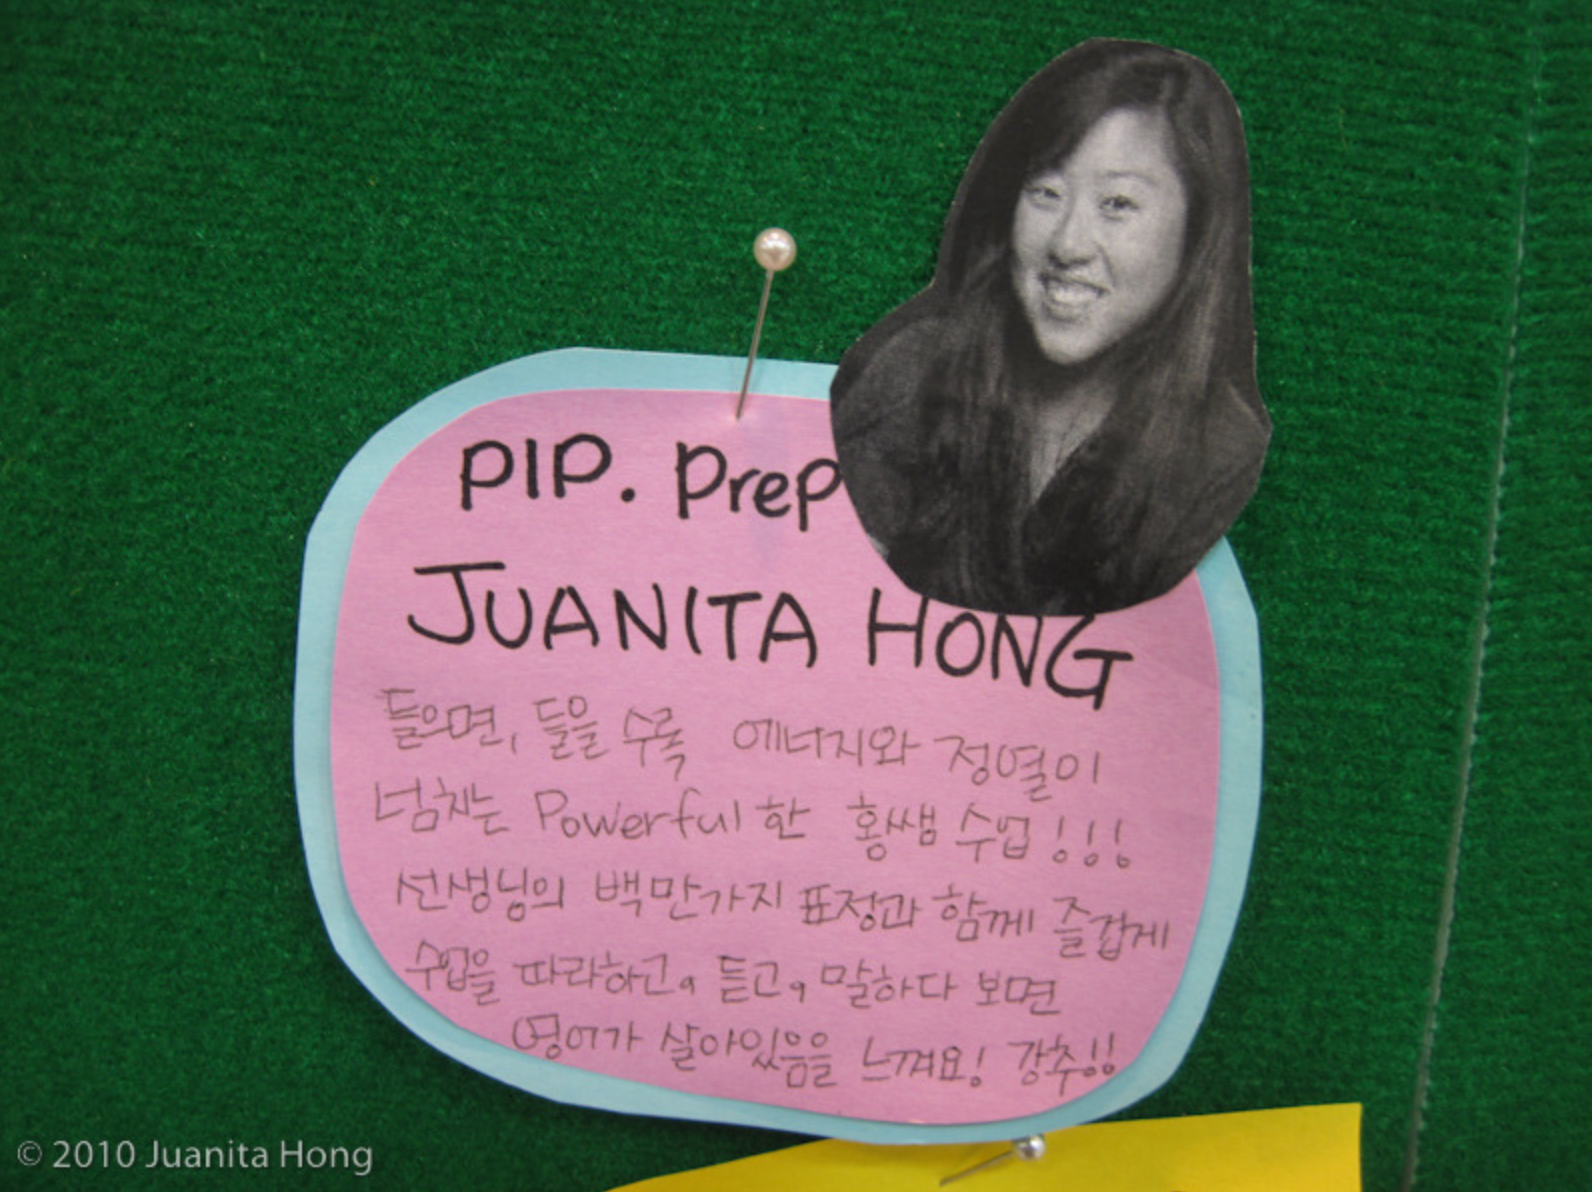 PIP. Prep
JUANITA HONG
들으면, 들을 수록 에너지와 정열이
넘치는 Powerful한 홍쌤 수업!!!
선생님의 백만가지 표정과 함께 즐겁게
수업을 따라하고, 듣고, 말하다 보면
영어가 살아있음을 느껴요! 강추!!
© 2010 Juanita Hong